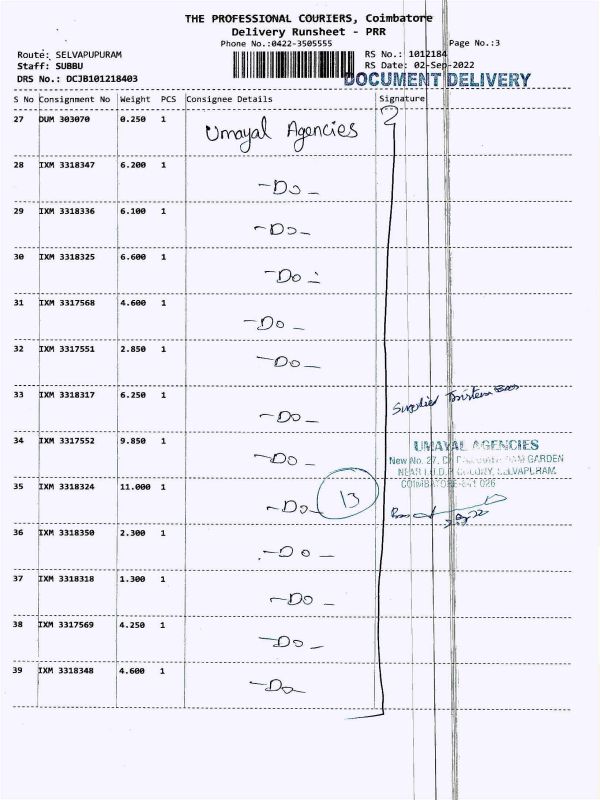 THE PROFESSIONAL COURIERS, Coimbatore
Delivery Runsheet - PRR
Phone No.:0422-3505555
Page No.:3
Route: SELVAPUPURAM
RS No.: 1012184
Staff: SUBBU
RS Date: 02-Sep-2022
DRS No.: DCJB101218403
DOCUMENT DELIVERY
S No Consignment No Weight PCS Consignee Details Signature
27 DUM 303070 0.250 1 Umayal Agencies
28 IXM 3318347 6.200 1 -Do-
29 IXM 3318336 6.100 1 -Do-
30 IXM 3318325 6.600 1 -Do-
31 IXM 3317568 4.600 1 -Do-
32 IXM 3317551 2.850 1 -Do-
33 IXM 3318317 6.250 1 -Do-
34 IXM 3317552 9.850 1 -Do-
UMAYAL AGENCIES
New No. 27, GARDEN
NEAR COLONY, SELVAPURAM
COIMBATORE-641 026
35 IXM 3318324 11.000 1 -Do- 13
36 IXM 3318350 2.300 1 -Do-
37 IXM 3318318 1.300 1 -Do-
38 IXM 3317569 4.250 1 -Do-
39 IXM 3318348 4.600 1 -Do-